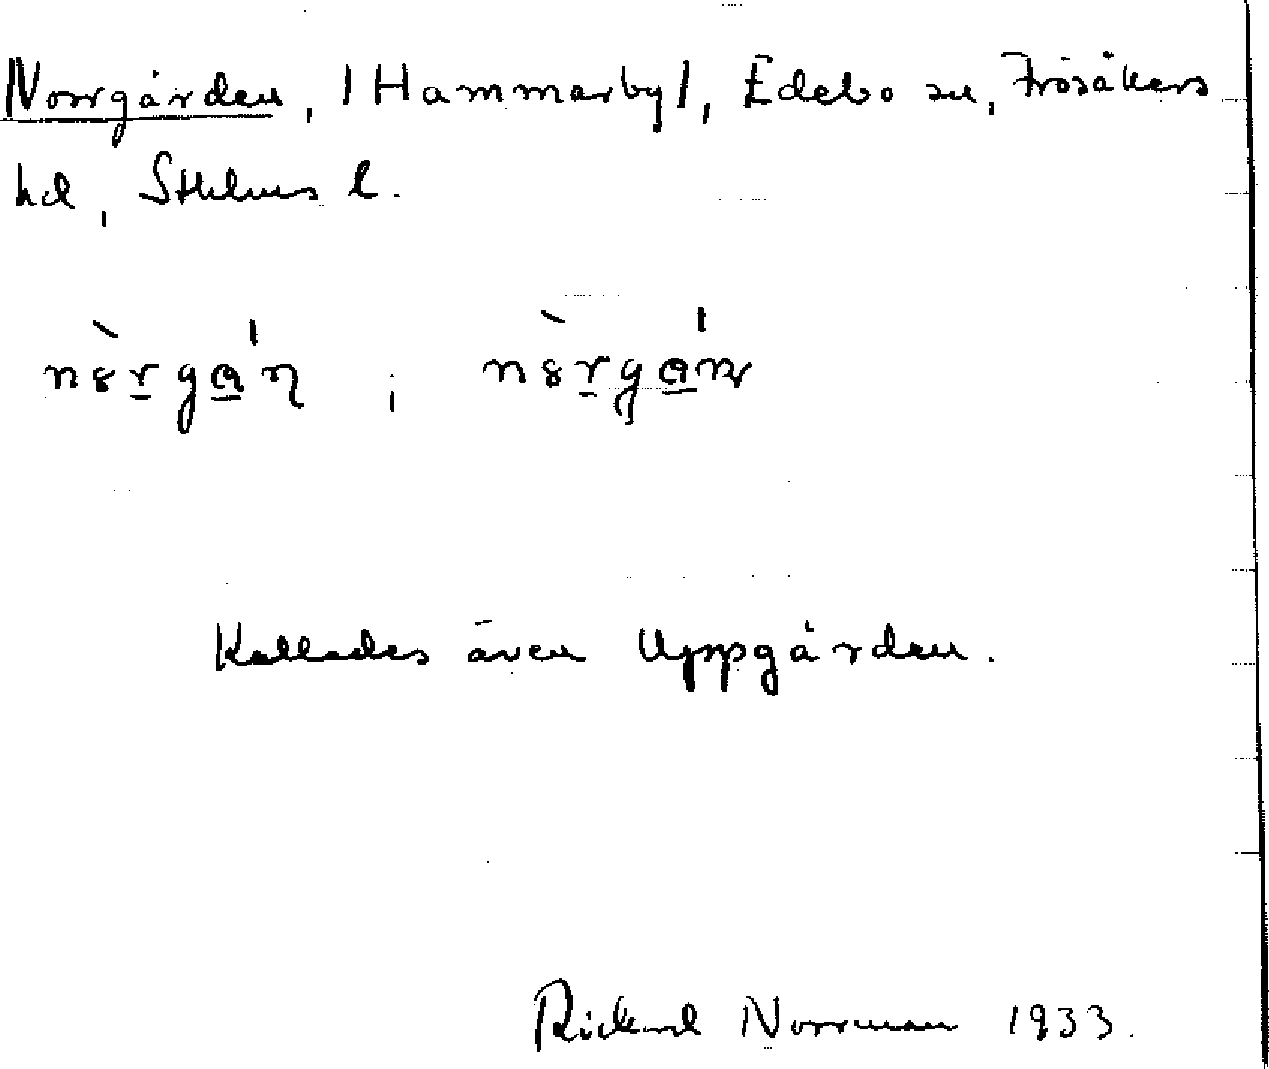 Norrgården, /Hammarby/, Edebo sn, Frösåkers
hd, Sthlms l.
Kallades även Uppgården.
Rickard Norrman 1933.